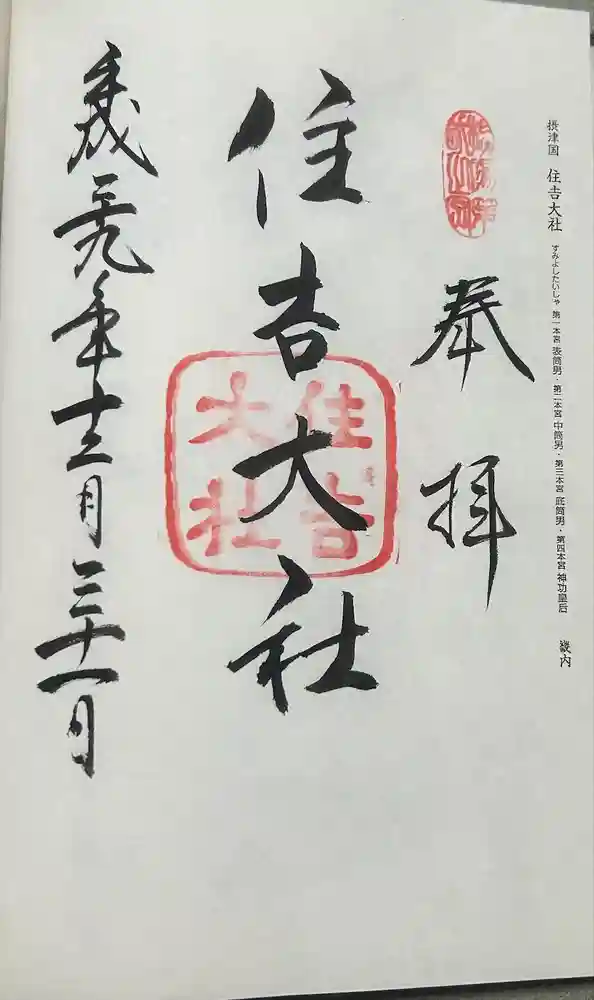 摂津国 住吉大社 すみよしたいしゃ 第一本宮 表筒男・第二本宮 中筒男・第三本宮 底筒男・第四本宮 神功皇后 畿内
奉拝
住吉大社
住吉大社
平成二十九年十二月三十一日